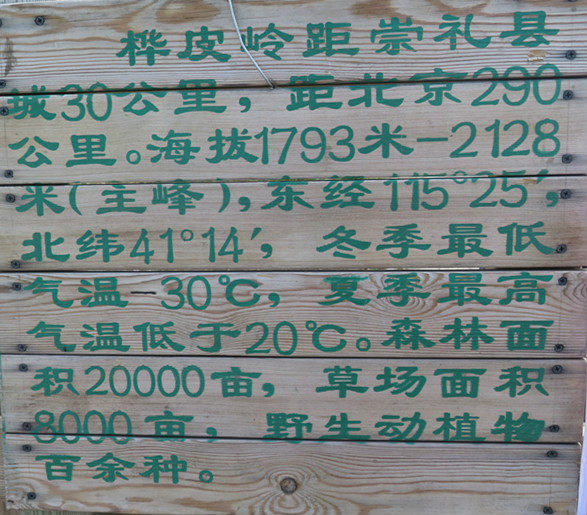 桦皮岭距崇礼县
城30公里，距北京290
公里。海拔1793米-2128
米(主峰)，东经115°25′，
北纬41°14′，冬季最低
气温-30℃，夏季最高
气温低于20℃。森林面
积20000亩，草场面积
8000亩，野生动植物
百余种。